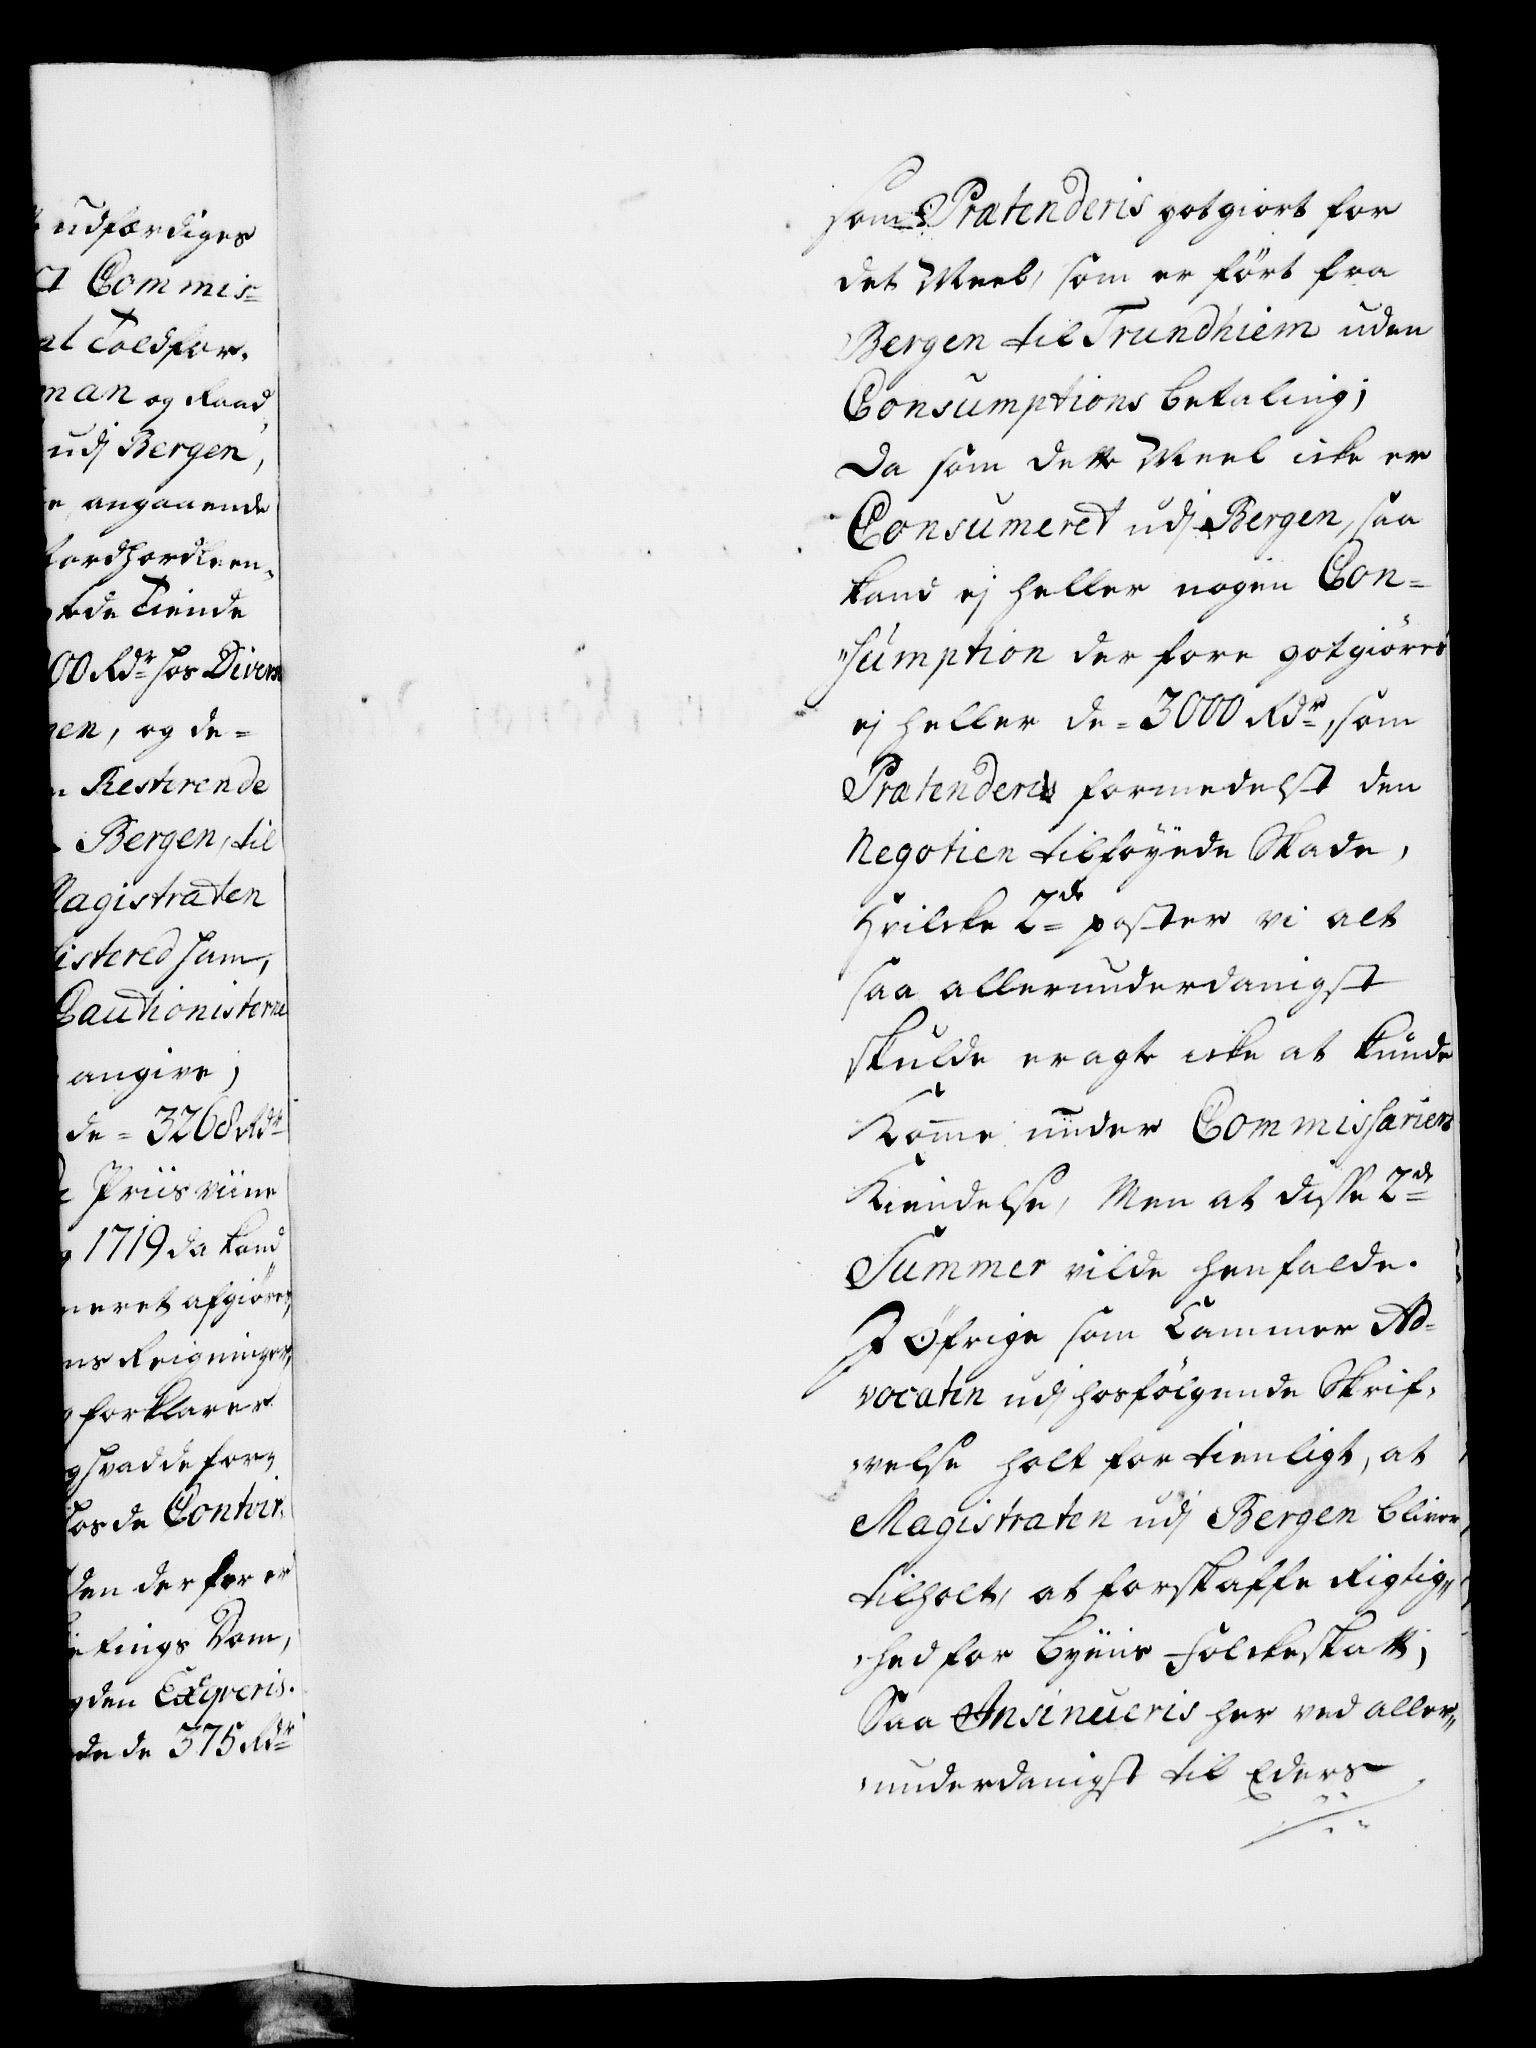 udfærdiges
Commis=
Toldfor,
man og Raad,
udj Bergen,
angaaende
Nordhordleen,
Tiende
00 Rdr hos Divers
og de=
Resterende
Bergen, til
Magistraten
Sum,
Cautionisterne
angive;
de = 3268 Rdr
Priis viine
1719 da kand
afgiöres,
Reigninger,
forklarer
hvad de for,
hos de Contoir,
den der for er
Dom,
den Exeqveris.
de 375 Rdr
som Prætenderis gotgiort for
det Meel, som er fört fra
Bergen til Trundhiem uden
Consumptions betaling;
Da som dette Meel icke er
Consumeret udj Bergen, saa
kand ej heller nogen Con=
"sumption der fore gotgiöres
ej heller de = 3000 Rdr, som
Prætenderis formedelst den
Negotien tilföyede Skade,
Hvilcke 2de poster vi alt
saa allerunderdanigst
skulde eragte icke at kunde
Komme under Commissariers
Kiendelse, Men at disse 2de
Summer vilde henfalde.
I Öfrige som Cammer Ad=
vocaten udj hosfölgende Skrif,
,velse holt for tienligt, at
Magistraten udj Bergen bliver
tilholt, at forskaffe Rigtig,,
,hed for Byens Folckeskatt;
Saa Insinueris her ved aller,,
,underdanigst til Eders